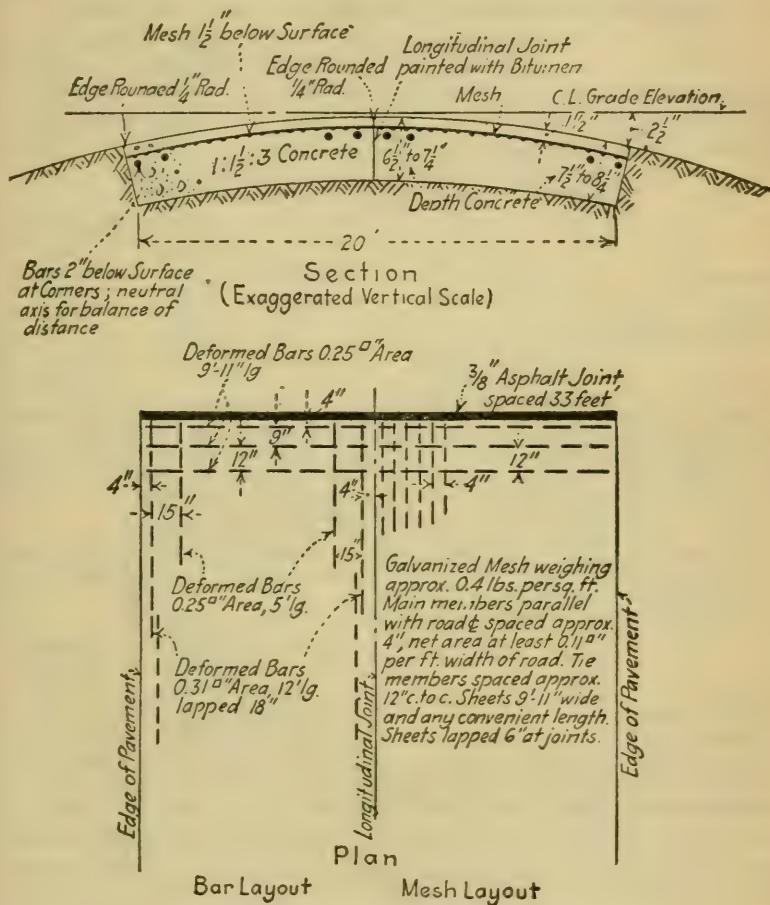 Mesh 1½" below Surface
Longitudinal Joint
painted with Bitumen
Edge Rounded
¼" Rad.
Edge Rounded ¼" Rad.
Mesh
C.L. Grade Elevation
1½"
2½"
1:1½:3 Concrete
6½" to 7¼"
7½" to 8¼"
Depth Concrete
20'
Bars 2" below Surface
at Corners; neutral
axis for balance of
distance
Section
(Exaggerated Vertical Scale)
Deformed Bars 0.25□" Area
9'-11" lg
4"
⅜" Asphalt Joint,
spaced 33 feet
9"
12"
12"
4"
15"
4"
4"
15"
Deformed Bars
0.25□" Area, 5' lg.
Deformed Bars
0.31□" Area, 12' lg.
lapped 18"
Galvanized Mesh weighing
approx. 0.4 lbs. per sq. ft.
Main members parallel
with road ℄ spaced approx.
4", net area at least 0.11□"
per ft. width of road. Tie
members spaced approx.
12" c. to c. Sheets 9'-11" wide
and any convenient length.
Sheets lapped 6" at joints.
Edge of Pavement
Longitudinal Joint
Edge of Pavement
Plan
Bar Layout
Mesh Layout